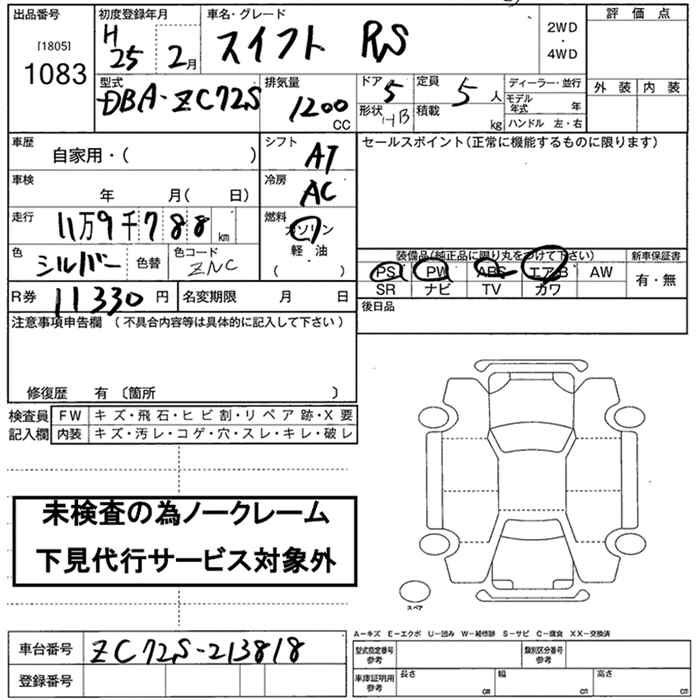 出品番号 [1805] 1083
初度登録年月 H 25 2月
車名・グレード スイフト RS
2WD・4WD
評価点
外装 内装
型式 DBA-ZC72S
排気量 1200 CC
ドア 5
形状 HB
定員 5人
積載 kg
ディーラー・並行
モデル年式 年
ハンドル 左・右
車歴 自家用・( )
シフト AT
セールスポイント(正常に機能するものに限ります)
車検 年 月( 日)
冷房 AC
走行 11万9千788km
燃料 ガソリン 軽油 ( )
色 シルバー 色替 色コード ZNC
装備品(純正品に限り丸をつけて下さい) 新車保証書
PS PW ABS エアB AW 有・無
SR ナビ TV カワ
R券 11330円 名変期限 月 日
後日品
注意事項申告欄 (不具合内容等は具体的に記入して下さい)
修復歴 有 〔箇所 〕
検査員 FW キズ・飛石・ヒビ割・リペア跡・X要
記入欄 内装 キズ・汚レ・コゲ・穴・スレ・キレ・破レ
未検査の為ノークレーム
下見代行サービス対象外
スペア
A-キズ E-エクボ U-凹み W-補修跡 S-サビ C-腐食 XX-交換済
車台番号 ZC72S-213818
型式指定番号 参考 類別区分番号 参考
登録番号
車庫証明用 参考 長さ cm 幅 cm 高さ cm